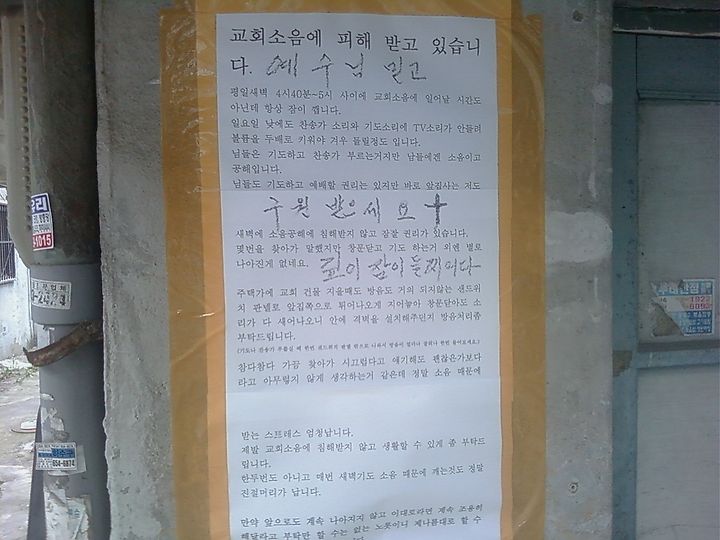 교회소음에 피해 받고 있습니
다. 예수님 믿고
평일새벽 4시40분~5시 사이에 교회소음에 일어날 시간도
아닌데 항상 잠이 깹니다.
일요일 낮에도 찬송가 소리와 기도소리에 TV소리가 안들려
볼륨을 두배로 키워야 겨우 들릴정도 입니다.
남들은 기도하고 찬송가 부르는거지만 남들에겐 소음이고
공해입니다.
남들도 기도하고 예배할 권리는 있지만 바로 앞집사는 저도
구원 받으세요
새벽에 소음공해에 침해받지 않고 잠잘 권리가 있습니다.
몇번을 찾아가 말했지만 창문닫고 기도 하는거 외엔 별로
나아진게 없네요.
주택가에 교회 건물 지을때도 방음도 거의 되지않는 샌드위
치 판넬로 앞집쪽으로 튀어나오게 지어놓아 창문닫아도 소
리가 다 새어나오니 안에 격벽을 설치해주던지 방음처리좀
부탁드립니다.
참다참다 가끔 찾아가 시끄럽다고 얘기해도 괜찮은가보다
라고 아무렇지 않게 생각하는거 같은데 정말 소음 때문에
받는 스트레스 엄청납니다.
제발 교회소음에 침해받지 않고 생활할 수 있게 좀 부탁드
립니다.
한두번도 아니고 매번 새벽기도 소음 때문에 깨는것도 정말
진절머리가 납니다.
만약 앞으로도 계속 나아지지 않고 이대로라면 계속 조용히
해달라고 부탁만 할 수는 없는 노릇이니 제나름대로 할 수